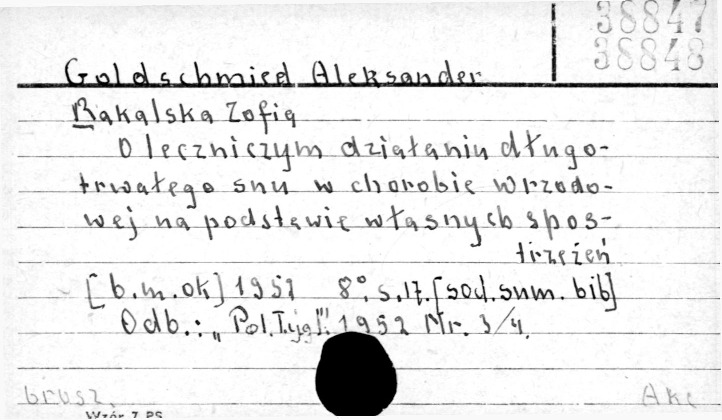 38847
38848
Goldschmied Aleksander
Rąkalska Zofia
O leczniczym działaniu długo-
trwałego snu w chorobie wrzodo-
wej na podstawie własnych spos-
trzeżeń
[b.m.ok] 1952 8°. s.17. [sod.sum.bib]
Odb.: „Pol.Tyg.l". 1952 Nr. 3/4.
brosz. Akc
Wzór 7 PS